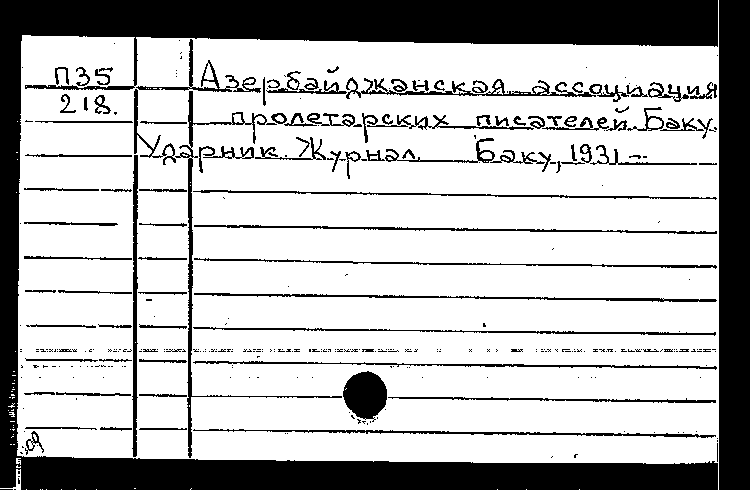 П35
218.
Азербайджанская ассоциация
пролетарских писателей. Баку.
Ударник. Журнал. Баку, 1931 –